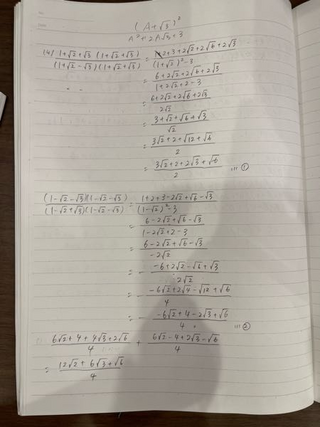 (A+√3)²
A²+2A√3+3
(4) (1+√2+√3)(1+√2+√3) / (1+√2-√3)(1+√2+√3) = 1+2+3+2√2+2√6+2√3 / (1+√2)²-3
= 6+2√2+2√6+2√3 / 1+2√2+2-3
= 6+2√2+2√6+2√3 / 2√2
= 3+√2+√6+√3 / √2
= 3√2+2+√12+√6 / 2
= 3√2+2+2√3+√6 / 2 ... ①
(1-√2-√3)(1-√2-√3) / (1-√2+√3)(1-√2-√3) = 1+2+3-2√2+√6-√3 / (1-√2)²-3
= 6-2√2+√6-√3 / 1-2√2+2-3
= 6-2√2+√6-√3 / -2√2
= -6+2√2-√6+√3 / 2√2
= -6√2+2√4-√12+√6 / 4
= -6√2+4-2√3+√6 / 4 ... ②
6√2+4+4√3+2√6 / 4 + 6√2-4+2√3-√6 / 4
= 12√2+6√3+√6 / 4